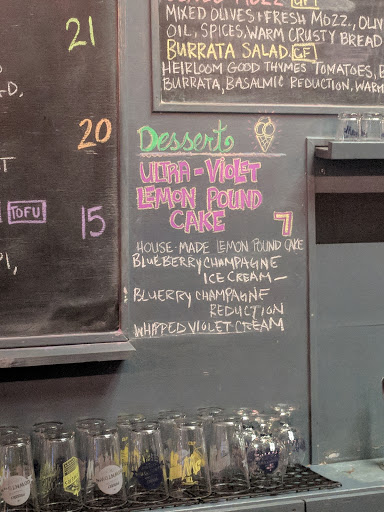 21
D,
20
ST
TOFU
15
MIXED OLIVES + FRESH MOZZ., OLIV
OIL, SPICES, WARM CRUSTY BREAD
BURRATA SALAD GF
HEIRLOOM GOOD THYMES TOMATOES, B
BURRATA, BASALMIC REDUCTION, WARM
Desserts
ULTRA-VIOLET
LEMON POUND
CAKE 7
HOUSE-MADE LEMON POUND CAKE
BLUEBERRY CHAMPAGNE
ICE CREAM-
BLUERRY CHAMPAGNE
REDUCTION
WHIPPED VIOLET CREAM